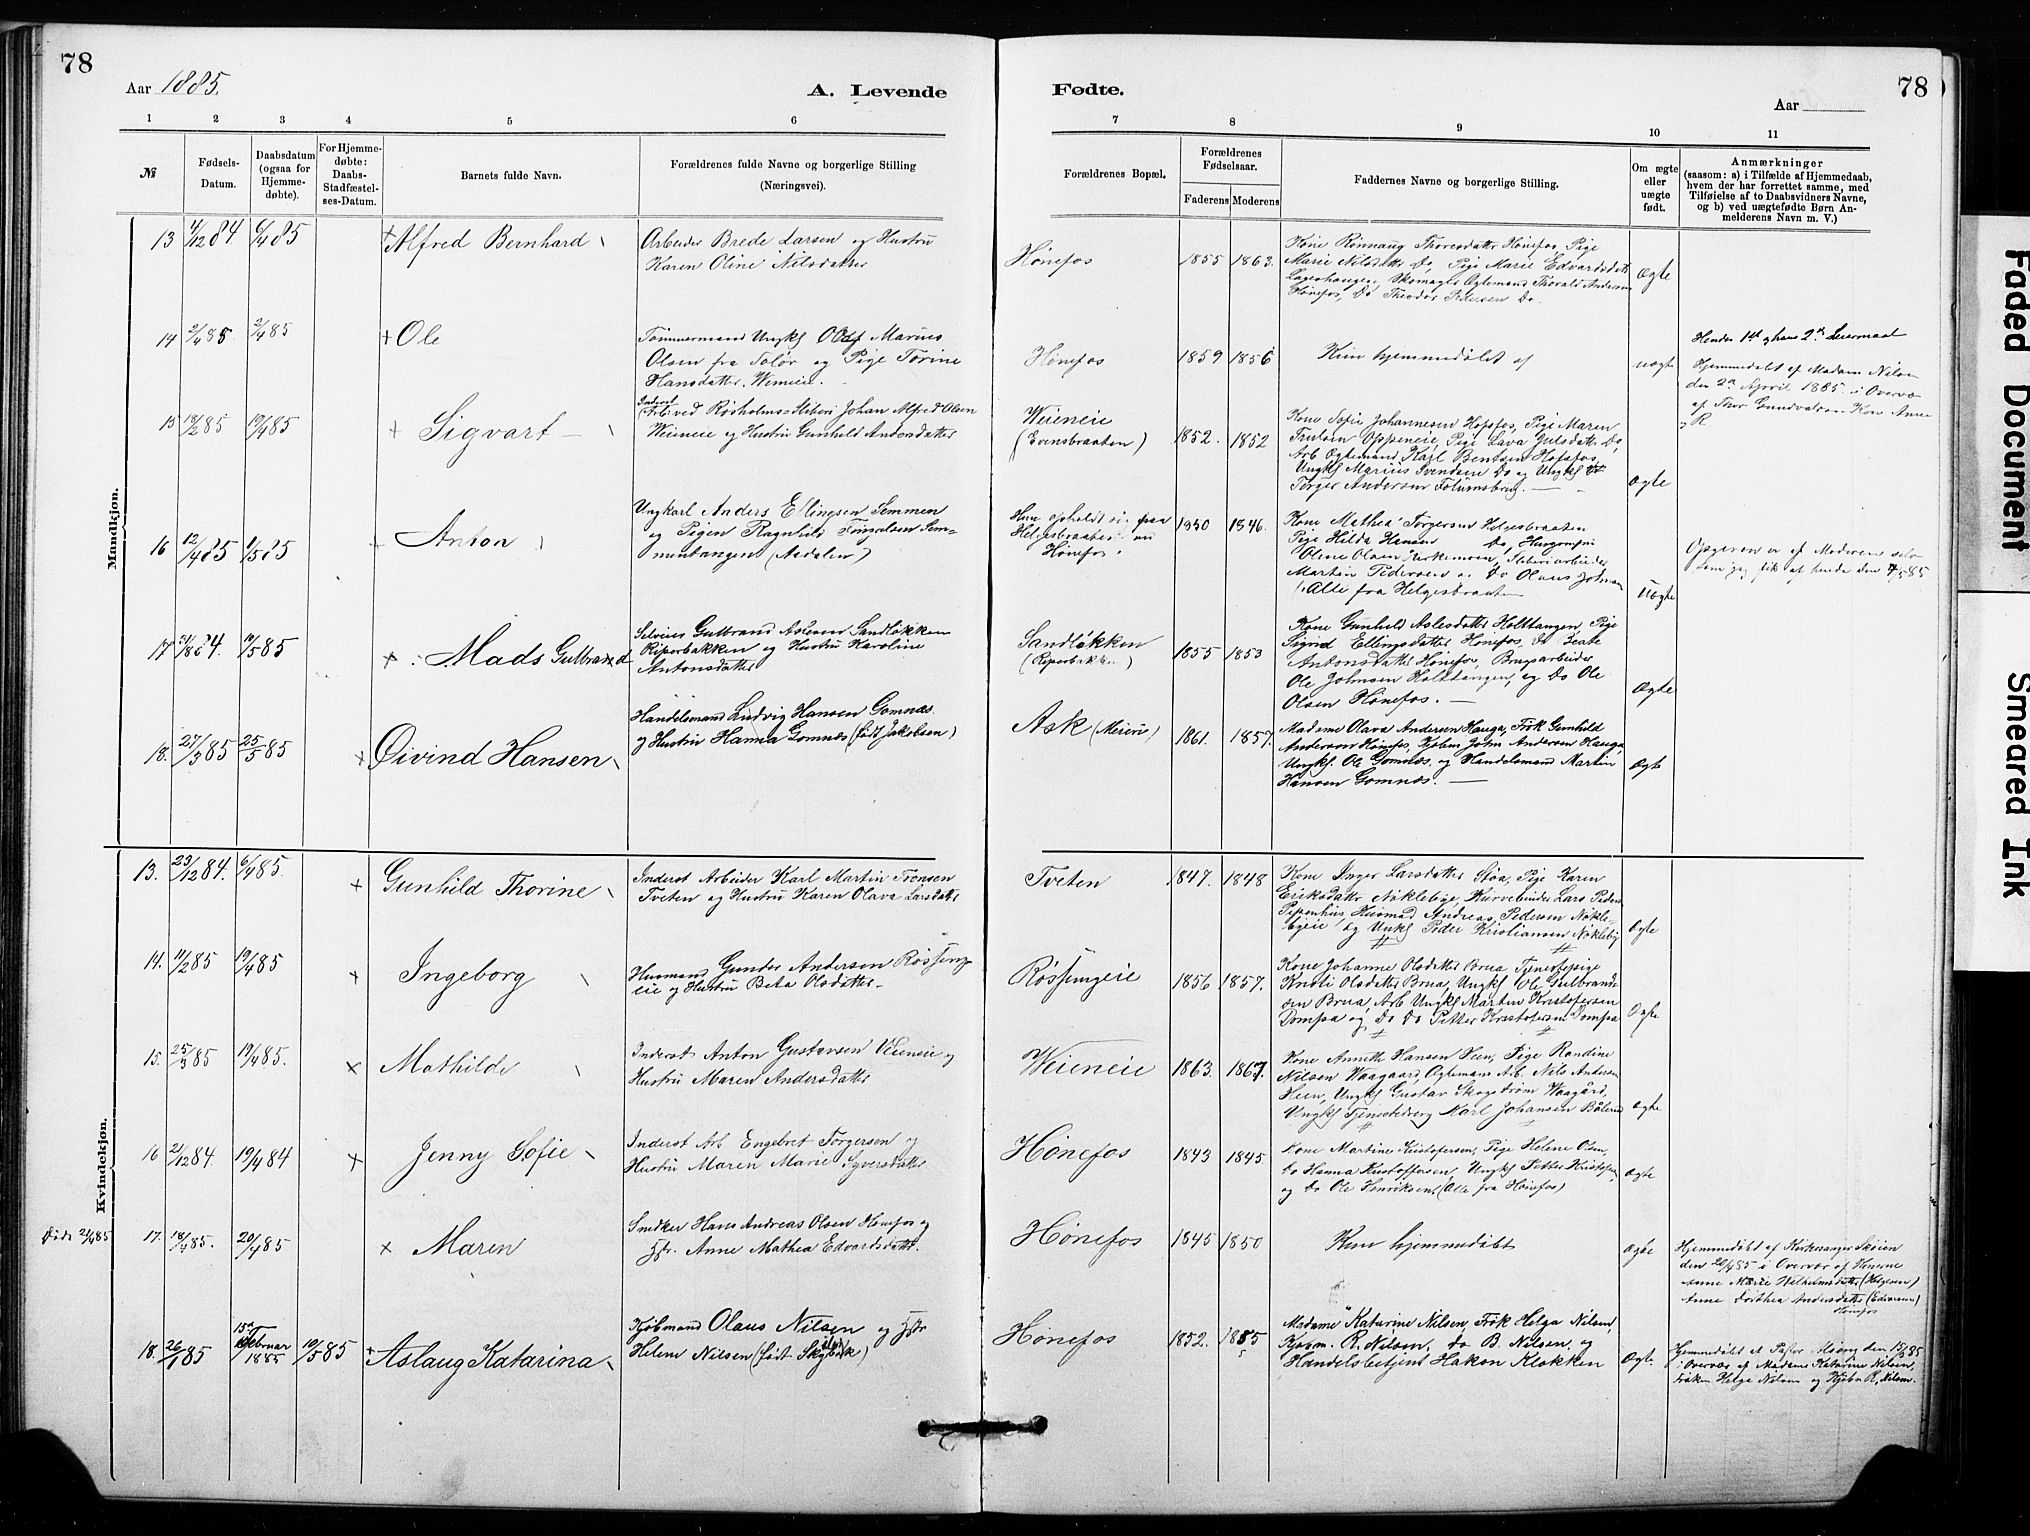 78
Aar 1885.
A. Levende
Fødte.
78
Aar
1 2 3 4 5 6 7 8 9 10 11
№
Fødsels-
Datum.
Daabsdatum
(ogsaa for
Hjemme-
døbte).
For Hjemme-
døbte:
Daabs-
Stadfæstel-
ses-Datum.
Barnets fulde Navn.
Forældrenes fulde Navne og borgerlige Stilling
(Næringsvei).
Forældrenes Bopæl.
Forældrenes
Fødselsaar.
Faderens Moderens
Faddernes Navne og borgerlige Stilling.
Om ægte
eller
uægte
født.
Anmærkninger
(saasom: a) i Tilfælde af Hjemmedaab,
hvem der har forrettet samme, med
Tilføielse af to Daabsvidners Navne,
og b) ved uægtefødte Børn An-
melderens Navn m. V.)
Mandkjøn.
13 4/12 84 6/4 85 Alfred Bernhard
Arbeider Brede Larsen og Hustru
Karen Oline Nilsdatter
Hønefos 1855 1863.
Kone Rønnaug Thoresdatter Hønefos, Pige
Marie Nilsdatter Do, Pige Marie Edvardsdatt
Skomager Ogtemand Thorald Andersen
Hønefos, Do Theodor Do.
Ægte
14 2/4 85 2/4 85 Ole
Tømmermand Ungk Olaf Marius
Olsen fra Solør og Pige Torine
Hansdatter, Weineie.
Hønefos 1859 1856
Kun hjemmedøbt af
uægte
Hendes 1st og hans 2det Leiermaal
Hjemmedøbt af Madam Nilsen
den 2den April 1885 i Overvær
af Thor Gundvalsen Kone Anne
R
15 18/2 85 19/4 85 Sigvart
Inderst
Arb. ved Røsholms Sliberi Johan Alfred Olsen
Weineie og Hustru Gunhild Andersdatter
Weieneie
(Evensbraaten)
1852. 1852
Kone Sofie Johannesen Hofsfos, Pige Maren
Trulsen Oppeneie, Pige Lava Do,
Arb Ogtemand Karl Bentsen Hofsfos,
Ungk Marius Svendsen Do og Ungk
Torger Andersen Follumsbrug.
Ægte
16 12/4 85 1/5 85 Anton
Ungkarl Anders Ellingsen Semmen
og Pigen Ragnhild Sem-
mentangen (Aadalen)
Hun opholdt sig paa
Helgesbraaten nu
Hønefos.
1850 1846.
Kone Mathea Torgersen Helgesbraaten
Pige Hilda Hansen Do,
Oline Olsen Sliberiarbeider
Martin Pedersen og Do Olaus Johnsen
Alle fra Helgesbraaten
Uægte
Opgaven er af Moderen selv
som jeg fik af hende den 4/5 85
17 31/8 84. 10/5 85 Mads Gulbrand
Selveier Gulbrand Aslesen Sandløkken
Riperbakken og Hustru Karoline
Antonsdatter
Sandløkken
(Riperbakk.)
1855 1853
Kone Gunhild Aslesdatter Holttangen, Pige
Sigrid Ellingsdatter Hønefos, Do Beate
Antonsdatter Hønefos, Brugsarbeider
Ole Johnsen Holttangen, og Do Ole
Olsen Hønefos.
Ægte
18. 27/3 85 25/5 85 Øivind Hansen
Handelsmand Ludvig Hansen Gomnæs.
og Hustru Hanna Gomnæs (født Jakobsen)
Ask (Meieri)
1861. 1857.
Madame Olava Andersen Hauga, Frøk Gunhild
Andersen Hønefos, Kjøbm John Andersen Hauga,
Ungk. Ole Gomnæs, og Handelsmand Martin
Hansen Gomnæs.
Ægte
Kvindekjøn.
13. 23/12 84. 6/4 85. Gunhild Thorine
Inderst Arbeider Karl Martin Tronsen
Tveten og Hustru Karen Olava Larsdatter
Tveten 1847. 1848
Kone Inger Larsdatter Støa, Pige Karen
Eriksdatter Nøklebye, Kurvebinder Lars Peders
Pipenhus, Husmand Andreas Pedersen Nøkle-
byeie og Ungk Peder Kristiansen Nøkleby
Ægte
14. 11/2 85 19/4 85 Ingeborg
Husmand Gunder Andersen Røssing
eie og Hustru Beta Olsdatter
Røssingeie 1856 1857.
Kone Johanne Olsdatter Brua Tjenestepige
Kristi Olsdatter Brua, Ungk Ole Gulbrands
sen Brua, Arb Ungk Martin Kristofersen
Dompa og Do Do Petter Kristofersen Dompa
Ægte
15. 25/3 85 19/4 85. Mathilde
Inderst Anton Gustavsen Veieneie og
Hustru Maren Andersdatter
Weieneie 1863. 1867.
Kone Annette Hansen Heen, Pige Randine
Nilsen Waagaard, Ogtemand Arb. Nils Andersen
Heen, Ungk Gustav Skogstrøm Waagård,
Ungk Tjenestedreng Karl Johansen
Ægte
16 21/12 84. 19/4 84 Jenny Sofie
Inderst Arb Engebret Torgersen og
Hustru Maren Marie Syversdatter
Hønefos 1843 1845
Kone Martine Kristofersen, Pige Helene Olsen,
Do Hanna Kristoffersen, Ungk Petter Kristofers,
og Do Ole Henriksen (Alle fra Hønefos)
Ægte
Døde 21/4 85
17. 18/4 85. 20/4 85 Maren
Snedker Hans Andreas Olsen Hønefos og
Hstr. Anne Mathea Edvardsdatt.
Hønefos 1845 1850
Kun hjemmedøbt
Ægte
Hjemmedøbt af Kirkesanger Skøien
den 20/4 85 i Overvær af Konerne
Anne Marie Wilhelmsdatter (Helgesen)
Anne Dorthea Andersdatter (Edvardsen)
Hønefos
18. 26/1 85 15de Februar 1885 10/5 85 Aslaug Katarina
Kjøbmand Olaus Nilsen og Hstr
Helene Nilsen (født)
Hønefos 1852. 1855
Madame Katarine Nilsen, Frøk Helga Nilsen,
Kjøbm. R. Nilsen, do B. Nilsen, og
Handelsbetjent Hakon Klokken
Ægte
Hjemmedøbt af Pastor den 15/2 85
i Overvær af Madame Katarine Nilsen,
Frøken Helga Nilsen og Kjøbm R. Nilsen.
Faded Document
Smeared Ink